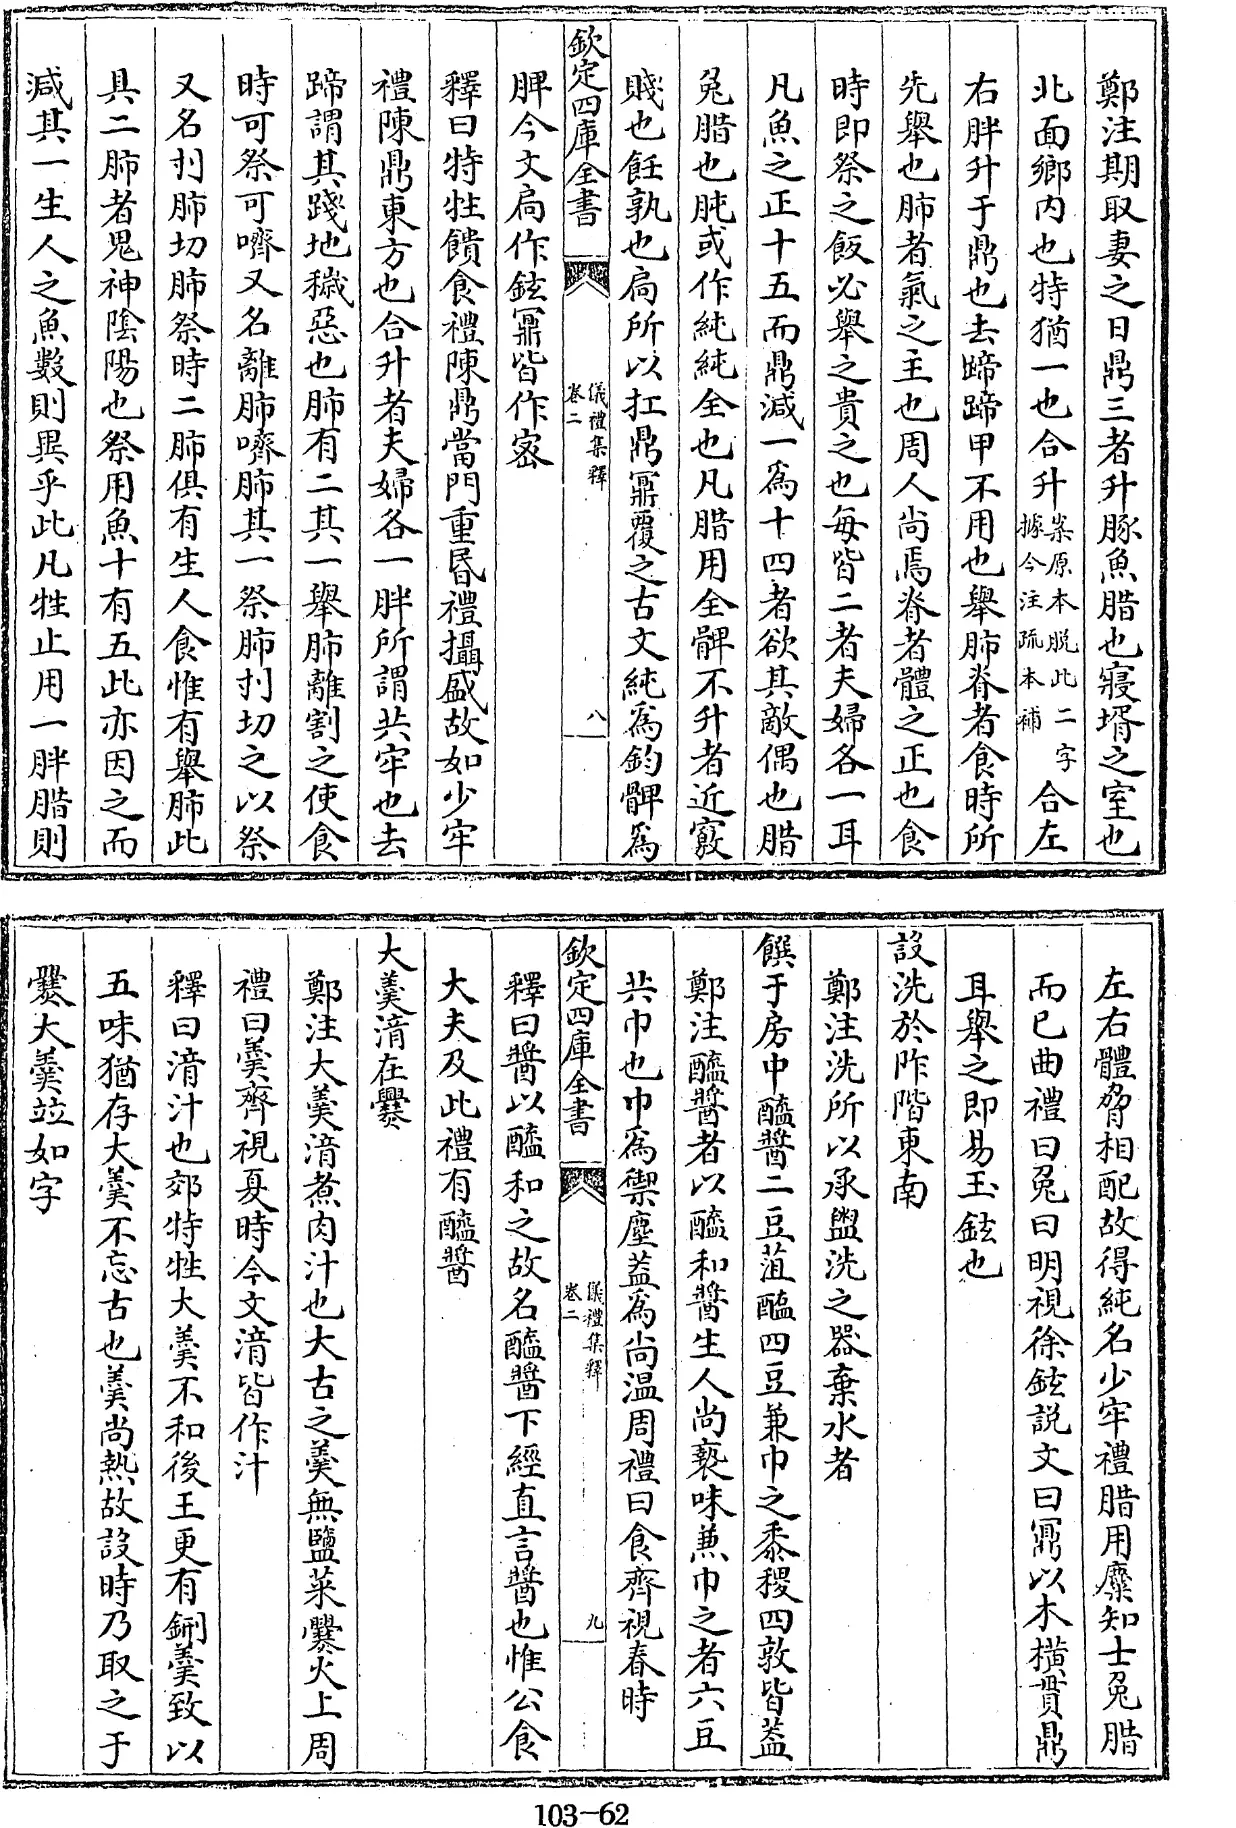 鄭注期取妻之日鼎三者升豚魚腊也寢壻之室也
北面鄉内也特猶一也合升案原本脱此二字據今注疏本補合左
右胖升于鼎也去蹄蹄甲不用也舉肺脊者食時所
先舉也肺者氣之主也周人尚焉脊者體之正也食
時即祭之飯必舉之貴之也每皆二者夫婦各一耳
凡魚之正十五而鼎減一為十四者欲其敵偶也腊
兔腊也肫或作純純全也凡腊用全髀不升者近竅
賤也飪孰也扃所以扛鼎鼏覆之古文純為鈞髀為
欽定四庫全書
儀禮集釋
卷二
八
脾今文扃作鉉鼏皆作宻
釋曰特牲饋食禮陳鼎當門重昬禮攝盛故如少牢
禮陳鼎東方也合升者夫婦各一胖所謂共牢也去
蹄謂其踐地穢惡也肺有二其一舉肺離割之使食
時可祭可嚌又名離肺嚌肺其一祭肺刌切之以祭
又名刌肺切肺祭時二肺俱有生人食惟有舉肺此
具二肺者鬼神隂陽也祭用魚十有五此亦因之而
減其一生人之魚數則異乎此凡牲止用一胖腊則
左右體脅相配故得純名少牢禮腊用麋知士兔腊
而已曲禮曰兔曰明視徐鉉説文曰鼏以木橫貫鼎
耳舉之即易玉鉉也
設洗於阼階東南
鄭注洗所以承盥洗之器棄水者
饌于房中醯醬二豆菹醢四豆兼巾之黍稷四敦皆蓋
鄭注醯醬者以醯和醬生人尚褻味兼巾之者六豆
共巾也巾為禦塵蓋為尚温周禮曰食齊視春時
欽定四庫全書
儀禮集釋
卷二
九
釋曰醬以醯和之故名醯醬下經直言醬也惟公食
大夫及此禮有醯醬
大羹湆在爨
鄭注大羹湆煮肉汁也大古之羹無鹽菜爨火上周
禮曰羹齊視夏時今文湆皆作汁
釋曰湆汁也郊特牲大羹不和後王更有鉶羹致以
五味猶存大羹不忘古也羹尚熱故設時乃取之于
爨大羹竝如字
103-62